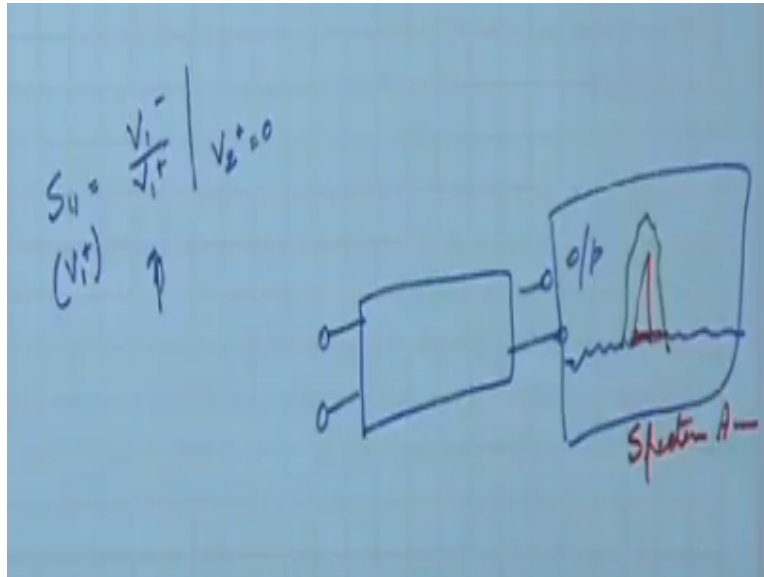 S₁₁ = V₁⁻ / V₁⁺ | V₂⁺ = 0
(V₁⁺)
o/p
Spectrum A